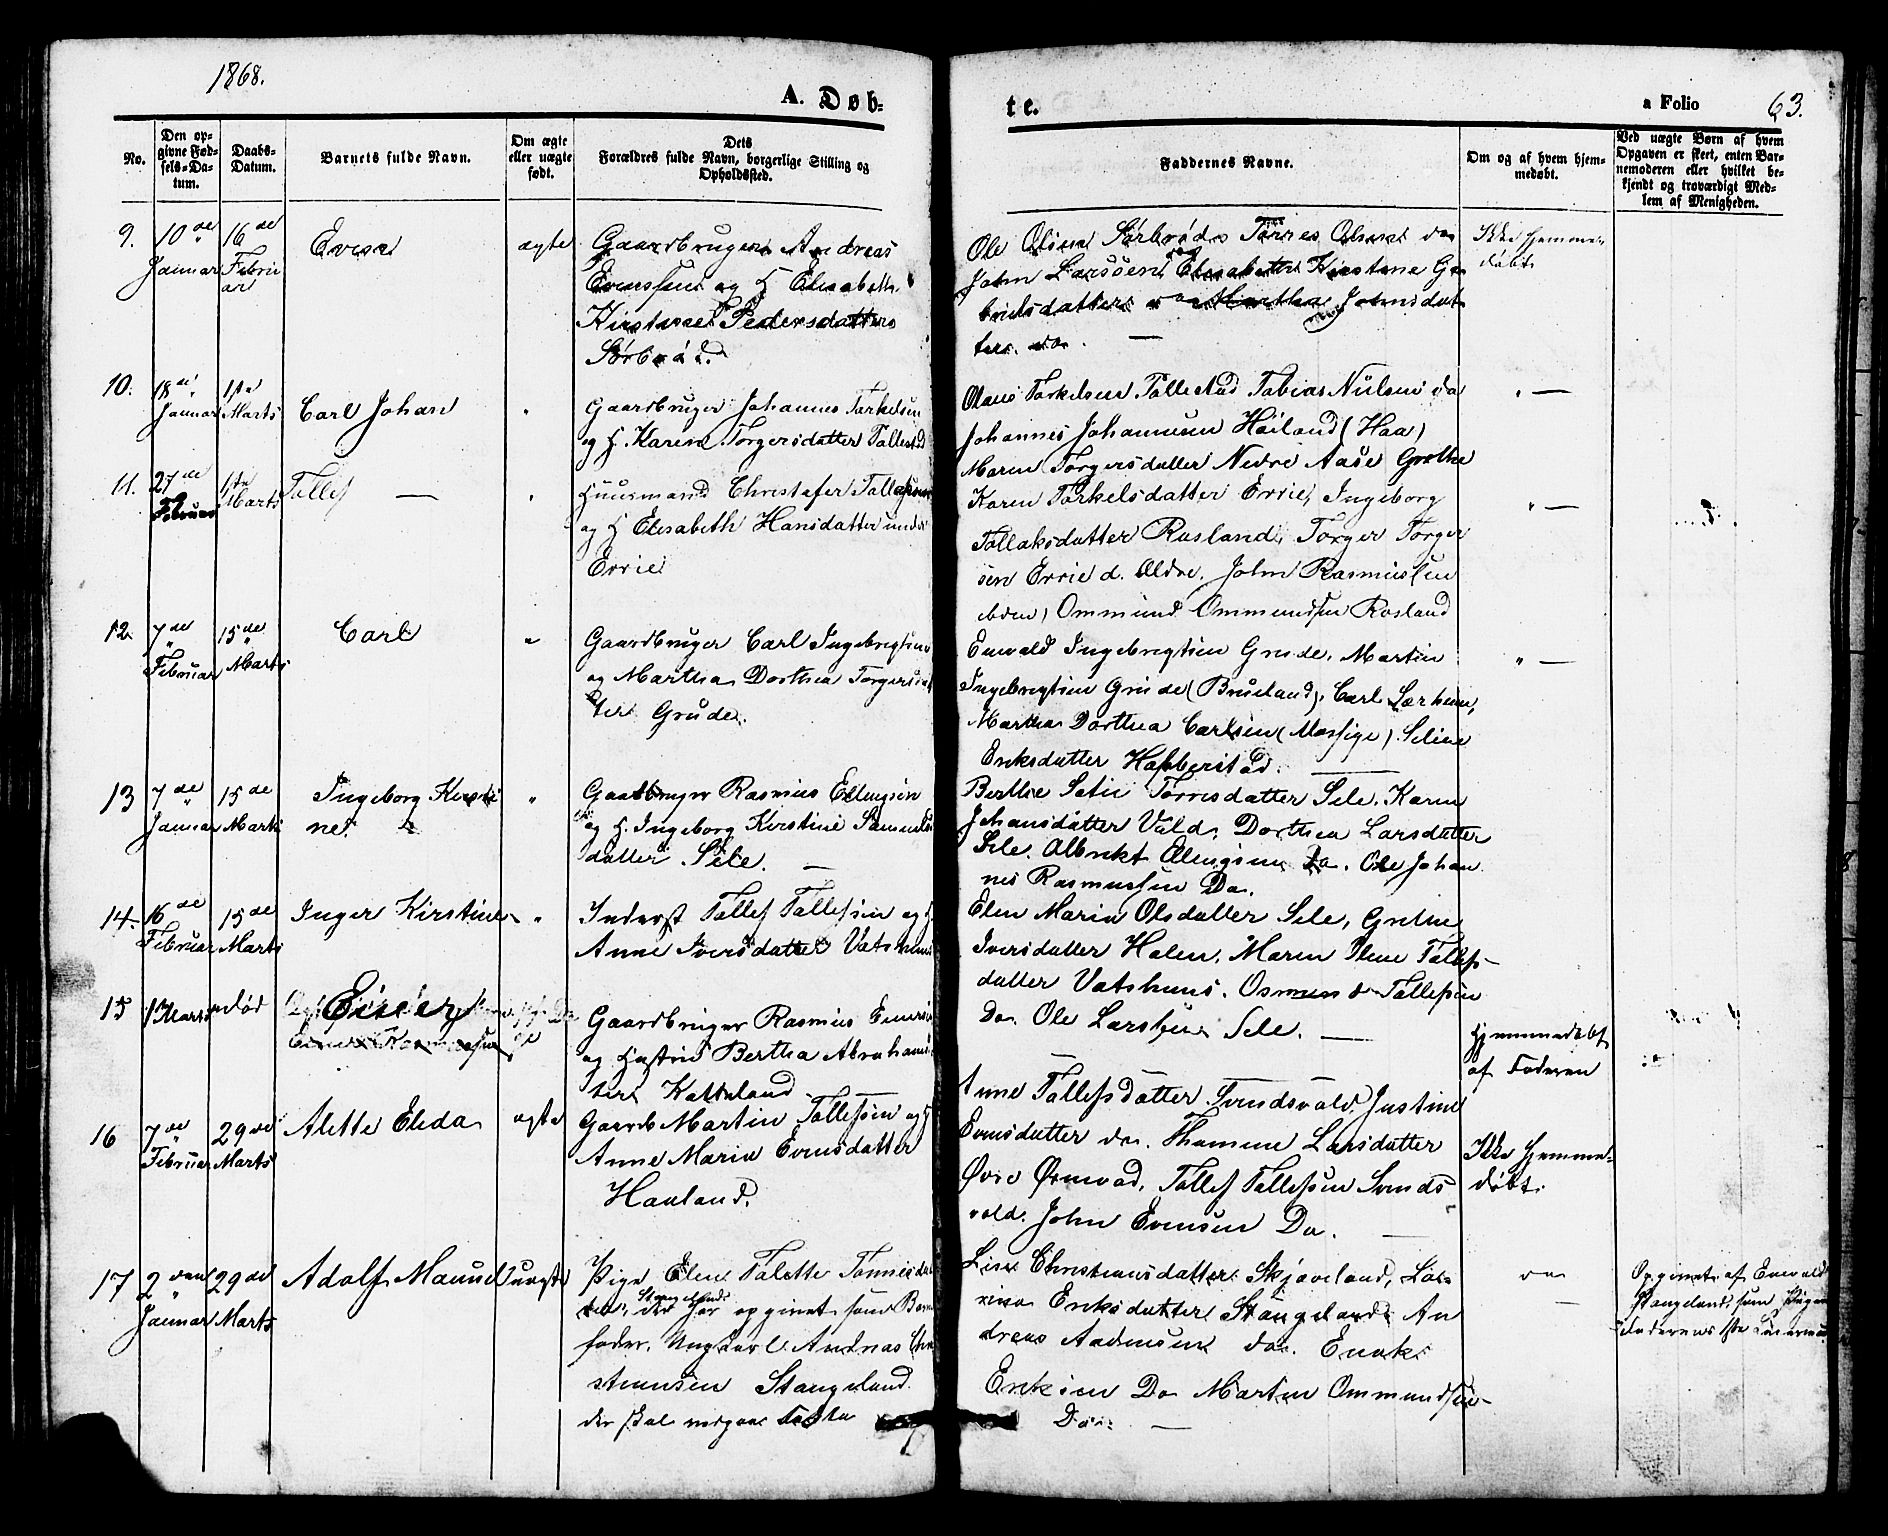 1868.
A. Døb-
te.
a Folio 63.
No.
Den op-
givne Fød-
sels-Da-
tum.
Daabs-
Datum.
Barnets fulde Navn.
Om ægte
eller uægte
født.
Dets
Forældres fulde Navn, borgerlige Stilling og
Opholdssted.
Faddernes Navne.
Om og af hvem hjem-
medøbt.
Ved uægte Børn af hvem
Opgaven er skeet, enten Bar-
nemoderen eller hvilket be-
kjendt og troværdigt Med-
lem af Menigheden.
9.
10de
Januar
16de
Febru
ar
Even
ægte
Gaardbruger Andreas
Evenssen og H Elisabeth
Kirstine Pedersdatter
Sørbrød.
Ole Olsen Sørbrød Tørres Olsen do
John Larssen Elisabeth Kirstine Ga
brielsdatter do Martha Johnsdat
ter do. —
Ikke hjemme-
døbt
10.
18de
Januar
1ste
Marts
Carl Johan
"
Gaardbruger Johannes Torkelsen
og H. Karen Torgersdatter Tollestad
Olaus Torkelsen Tollestad Tobias Nielsen do
Johannes Johannesen Høiland (Haa)
Maren Torgersdatter Nedre Aase Grethe
" —
11.
27de
Februar
1ste
Marts
Tollef —
"
Huusmand Christofer Tollefsen
og H Elisabeth Hansdatter under
Errie
Karen Torkelsdatter Errie, Ingeborg
Tollaksdatter Rosland, Torger Torger
sen Errie d. Ældre. John Rasmussen
ibden, Ommund Ommundsen Rosland
" —
12.
7de
"
Februar
15de
"
Marts
Carl
"
Gaardbruger Carl Ingebregtsen
og Martha Dorthea Torgersdat
ter Grude.
Enevald Ingebregtsen Grude, Martin
Ingebregtsen Grude (Brueland), Carl Sørheim,
Martha Dorthea Carlsen (Mossige) Seline
Eriksdatter Habberstad. —
" —
13
7de
"
Januar
15de
Marts
Ingeborg Kirsti
ne.
"
Gaardbruger Rasmus Ellingsen
og H. Ingeborg Kirstine Samuels
datter Sele. —
Berthe Tørresdatter Sele. Karen
Johansdatter Vold, Dorthea Larsdatter
Sele. Albrekt Ellingsen Do. Ole Johan
nes Rasmussen Do.
14.
16de
Februar
15de
Marts
Inger Kirstine
"
Inderst Tollef Tollefsen og H
Anne Iversdatter Vatshuus
Elen Maria Olsdatter Sele, Grethe
Iversdatter Holen, Maren Elene Tollefs-
datter Vatshuus. Osmund Tollefsen
Do. Ole Larssen Sele. —
15
13 Marts
død
Einer
Gaardbruger Rasmus Einersen
og Hustru Bertha Abrahamsdat
ter Katteland
Hjemmedøbt
af Faderen
16
7de
"
Februar
29de
Marts
Alette Elida
ægte
Gaardb Martin Tollefsen og H
Anne Maria Evensdatter
Haaland.
Anne Tollefsdatter Svendsvold, Justine
Evensdatter do. Thomine Larsdatter
Øvre Ørnvad, Tollef Tollefsen Svends
vold. John Evensen Do. —
Ikke hjemme-
døbt.
17
2den
"
Januar
29de
Marts
Adolf Manuel
uægte
Pige Elene Talette Tønnesdat
ter Stangeland, der har opgivet som Barne
fader Ungkarl Andreas Chri
stensen Stangeland.
der skal
Lisa Christensdatter Skjæveland, Lov
risa Eriksdatter Stangeland, An
dreas Aadnesen do. Enok
Eriksen Do Marten Ommundsen
Do. —
do
—
Opgivet af Enevald
Stangeland, som
Faderens 1ste Leiermaal